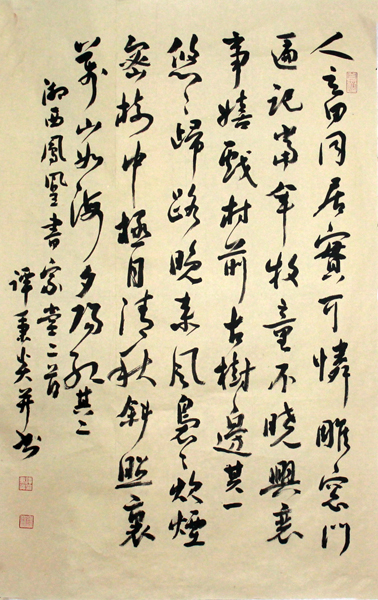 人畜同居實可憐雕窓門
匾記當年牧童不曉興衰
事嬉戲村前古樹邊其一
悠々歸路晚來風裊々炊煙
密樹中極目清秋斜照裏
萬山如海夕陽紅其二
湘西鳳凰書家堂二首
譚秉炎并書